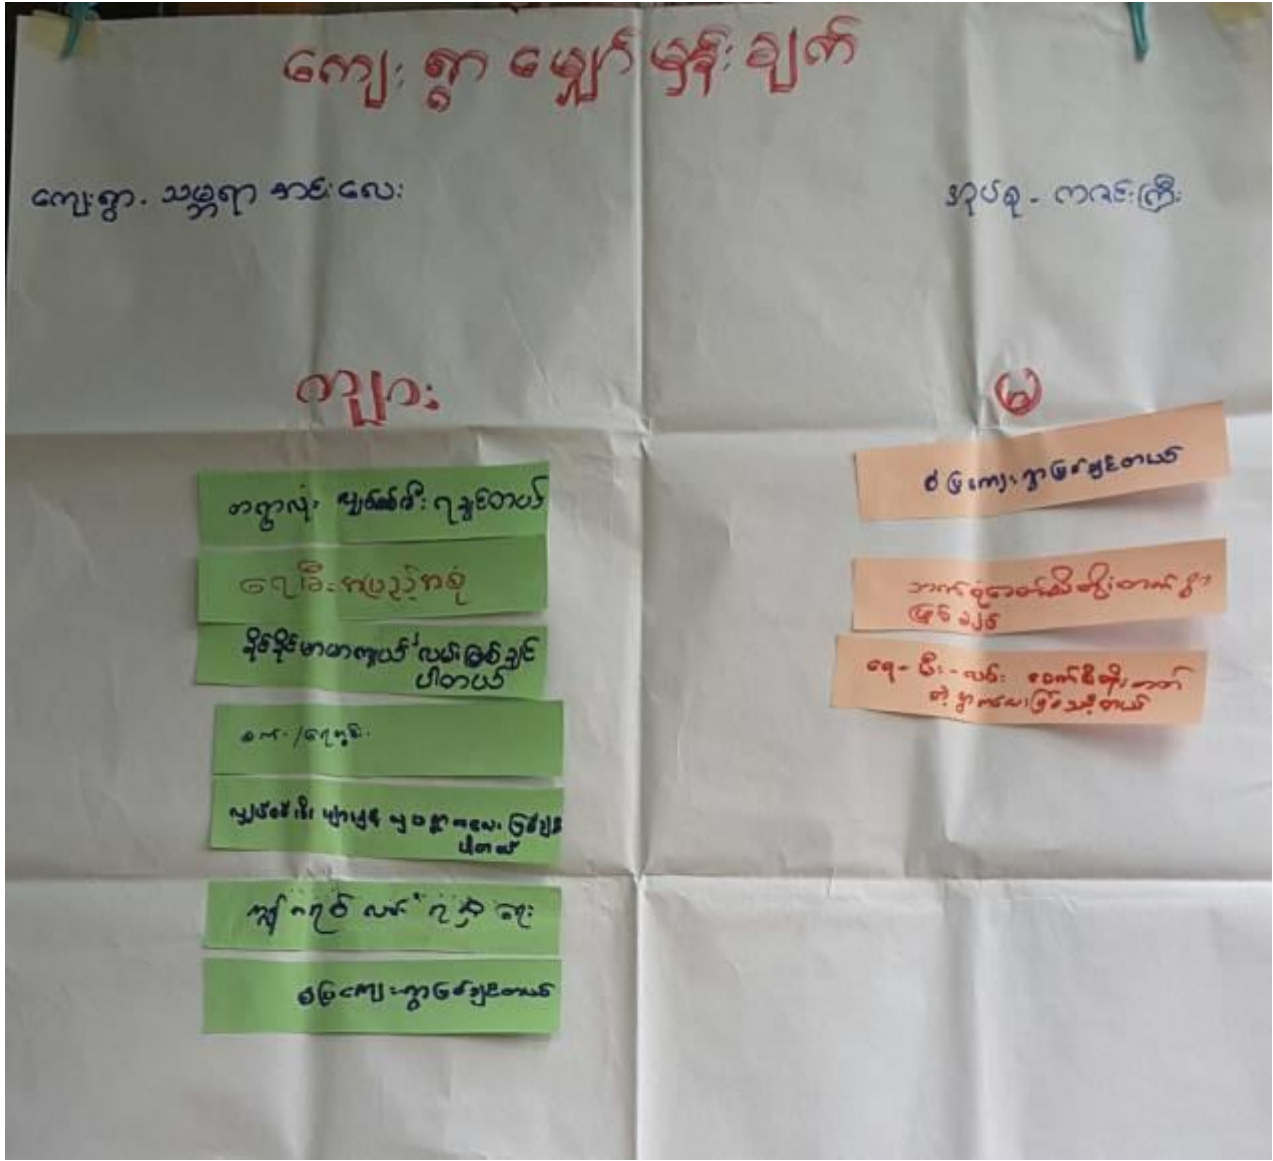 ကျေးရွာ မျှော်မှန်းချက်
ကျေးရွာ - သမ္ဘရာ စာင်းလေး
အုပ်စု - ကဇင်းကြီး
ကျား
မ
တရွာလုံး လျှပ်စစ်မီး ရချင်တယ်
ရေ၊မီး အပြည့်အစုံ
ခိုင်ခိုင်မာမာကျယ် လမ်းဖြစ်ချင်
ပါတယ်
လျှပ်စစ်မီး များမှန် ရွာကလေး ဖြစ်ချင်
ပါတယ်
ကျွန်ုပ်တို့ လမ်း ရရှိရေး
စံပြကျေးရွာဖြစ်ချင်တယ်
စံပြကျေးရွာဖြစ်ချင်တယ်
ဘက်စုံခေတ်မီတိုးတက်ရွာ
ဖြစ်ချင်
ရေ - မီး - လမ်း ခေတ်မီတိုးတက်
တဲ့ ရွာကလေးဖြစ်သင့်တယ်